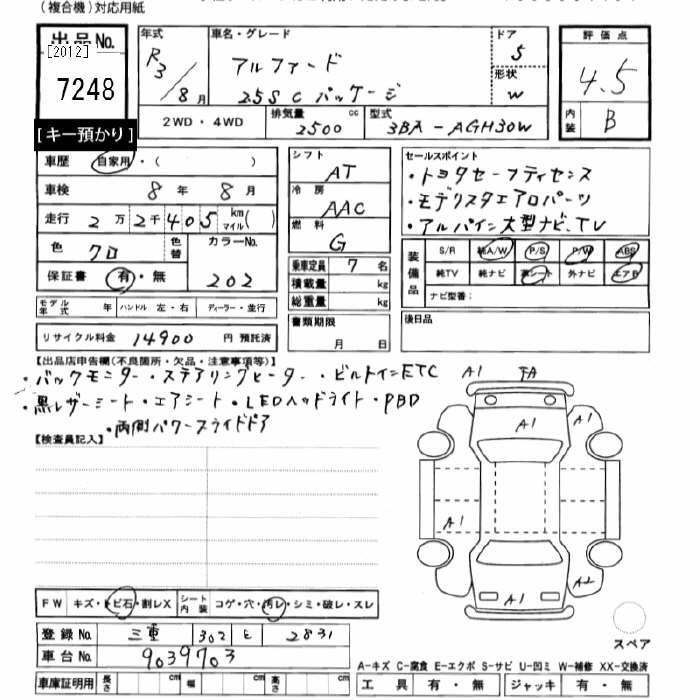 (複合機)対応用紙
出品No.
[2012]
7248
[キー預かり]
年式
R3/8月
車名・グレード
アルファード
2.5S Cパッケージ
ドア
5
形状
W
評価点
4.5
内装
B
2WD・4WD
排気量
2500 cc
型式
3BA-AGH30W
車歴 自家用・( )
車検 8年 8月
走行 2万2千405km マイル( )
色 クロ 色替
カラーNo.
202
保証書 有・無
モデル年式 年 ハンドル 左・右 ディーラー・並行
リサイクル料金 14900 円 預託済
シフト
AT
冷房
AAC
燃料
G
乗車定員 7 名
積載量 kg
総重量 kg
書類期限
月 日
セールスポイント
・トヨタセーフティセンス
・モデリスタエアロパーツ
・アルパイン大型ナビ、TV
装備品
S/R 純A/W P/S P/W ABS
純TV 純ナビ 革シート 外ナビ エアB
ナビ型番:
後日品
【出品店申告欄(不良箇所・欠品・注意事項等)】
・バックモニター・ステアリングヒーター・ビルトインETC
・黒レザーシート・エアシート・LEDヘッドライト・PBD
・両側パワースライドドア
【検査員記入】
A1
A1
A1
A1
A1
A2
スペア
FW キズ・トビ石・割レX
シート内装 コゲ・穴・汚レ・シミ・破レ・スレ
登録No. 三重 302 と 2831
車台No. 9039703
車庫証明用 長さ cm 幅 cm 高さ cm
A-キズ C-腐食 E-エクボ S-サビ U-凹ミ W-補修 XX-交換済
工具 有・無 ジャッキ 有・無